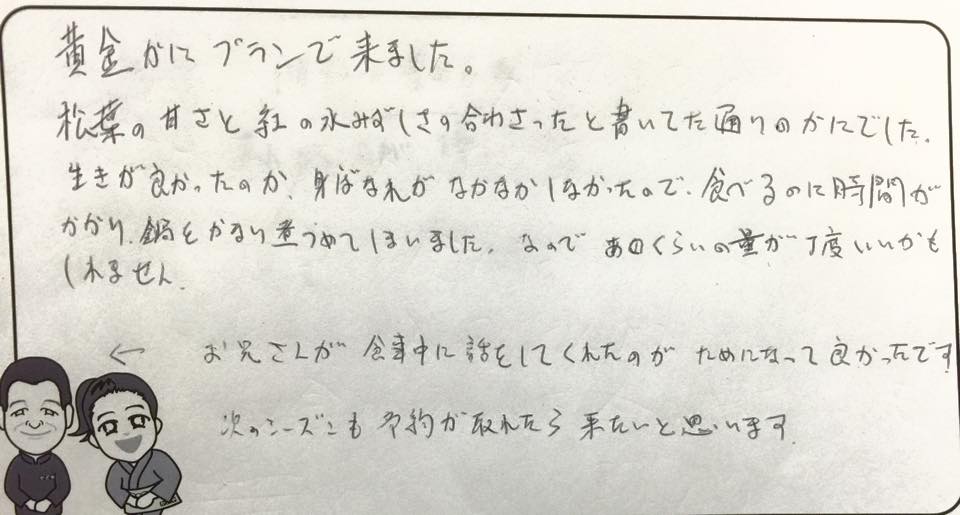 黄金かにプランで来ました。
松葉の甘さと紅の水みずしさの合わさったと書いてた通りのかにでした。
生きが良かったのか、身ばなれがなかなかしなかったので、食べるのに時間が
かかり、鍋をかなり煮つめてしまいました。なので あのくらいの量が丁度いいかも
しれません。
← お兄さんが食事中に話をしてくれたのが ためになって良かったです
次のシーズンも予約が取れたら来たいと思います。